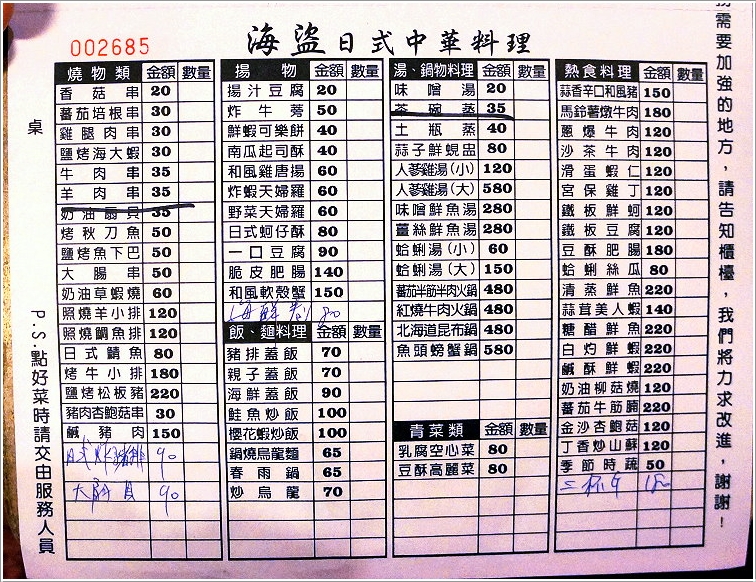 002685
海盜日式中華料理
燒物類 金額 數量
香菇串 20
蕃茄培根串 30
雞腿肉串 30
鹽烤海大蝦 30
牛肉串 35
羊肉串 35
奶油扇貝 35
烤秋刀魚 50
鹽烤魚下巴 50
大腸串 50
奶油草蝦燒 60
照燒羊小排 120
照燒鯛魚排 120
日式鯖魚 80
烤牛小排 180
鹽烤松板豬 220
豬肉杏鮑菇串 30
鹹豬肉 150
日式炸豬排 90
大干貝 90
揚物 金額 數量
揚汁豆腐 20
炸牛蒡 50
鮮蝦可樂餅 40
南瓜起司酥 40
和風雞唐揚 60
炸蝦天婦羅 60
野菜天婦羅 60
日式蚵仔酥 80
一口豆腐 90
脆皮肥腸 140
和風軟殼蟹 150
海鮮卷 80
飯、麵料理 金額 數量
豬排蓋飯 70
親子蓋飯 70
海鮮蓋飯 90
鮭魚炒飯 100
櫻花蝦炒飯 100
鍋燒烏龍麵 65
春雨鍋 65
炒烏龍 70
湯、鍋物料理 金額 數量
味噌湯 20
茶碗蒸 35
土瓶蒸 40
蒜子鮮蜆盅 80
人蔘雞湯(小) 120
人蔘雞湯(大) 580
味噌鮮魚湯 280
薑絲鮮魚湯 280
蛤蜊湯(小) 60
蛤蜊湯(大) 150
蕃茄半筋半肉火鍋 480
紅燒牛肉火鍋 480
北海道昆布鍋 480
魚頭螃蟹鍋 580
青菜類 金額 數量
乳腐空心菜 80
豆酥高麗菜 80
熱食料理 金額 數量
蒜香辛口和風豬 150
馬鈴薯燉牛肉 180
蔥爆牛肉 120
沙茶牛肉 120
滑蛋蝦仁 120
宮保雞丁 120
鐵板鮮蚵 120
鐵板豆腐 120
豆酥肥腸 180
蛤蜊絲瓜 80
清蒸鮮魚 220
蒜茸美人蝦 140
糖醋鮮魚 220
白灼鮮蝦 220
鹹酥鮮蝦 220
奶油柳菇燒 120
蕃茄牛筋腩 220
金沙杏鮑菇 120
丁香炒山蘇 120
季節時蔬 50
三杯 180
桌
P.S.點好菜時請交由服務人員
務需要加強的地方，請告知櫃檯，我們將力求改進，謝謝！